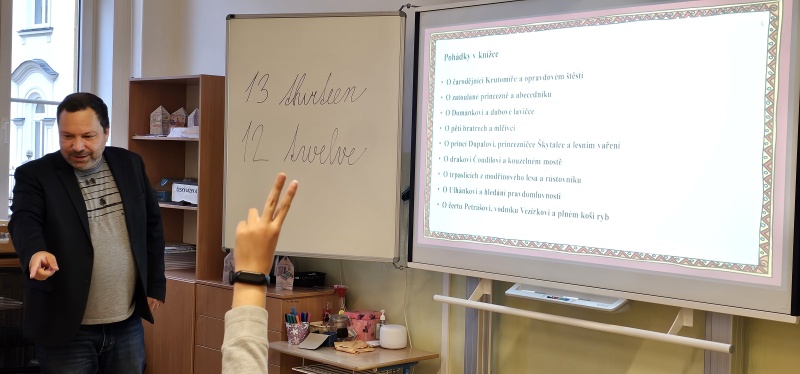 13 thirteen
12 twelve
Pohádky v knížce
• O čarodějnici Krutomíře a opravdovém štěstí
• O zatoulané princezně a abecedníku
• O Domankovi a dubové lavičce
• O pěti bratrech a mlčivci
• O princi Dupalovi, princezničce Škytalce a lesním vaření
• O drakovi Čoudilovi a kouzelném mostě
• O trpaslících z modřínového lesa a růstovníku
• O Ulhánkovi a hledání pravdomluvnosti
• O čertu Petrášovi, vodníku Vezírkovi a plném koši ryb